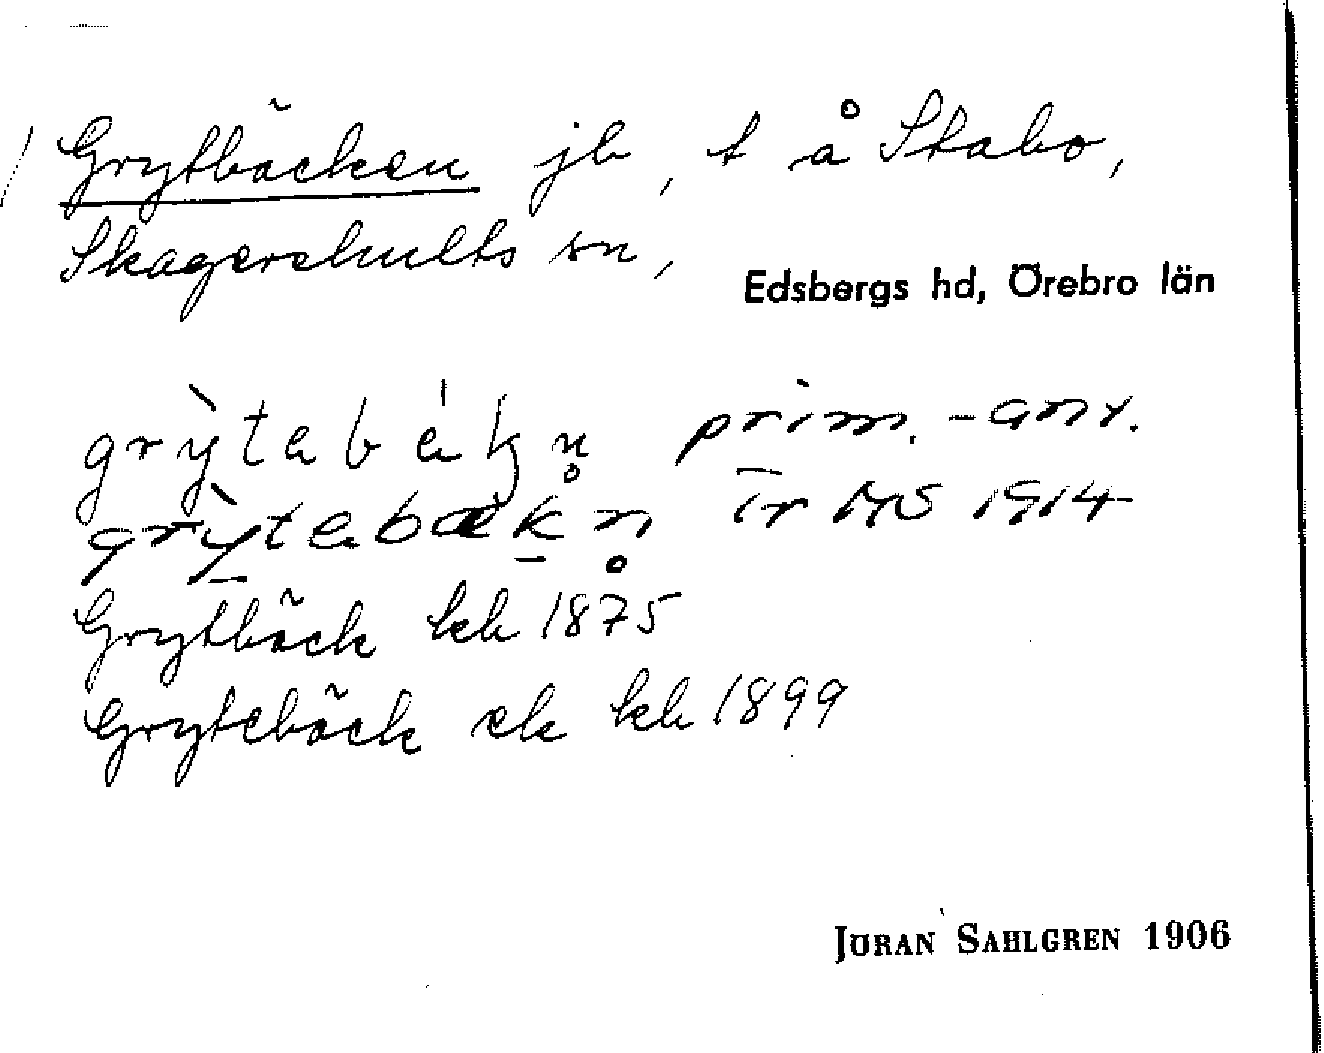 Grytbäcken jb, t å Stabo,
Skagershults sn,
Edsbergs hd, Örebro län
grỳtabákn̥ prim.-anv.
grỳtebækn̥ IR MS 1914
Grytbäck kb 1875
Grytebäck ek kb 1899
JÖRAN SAHLGREN 1906